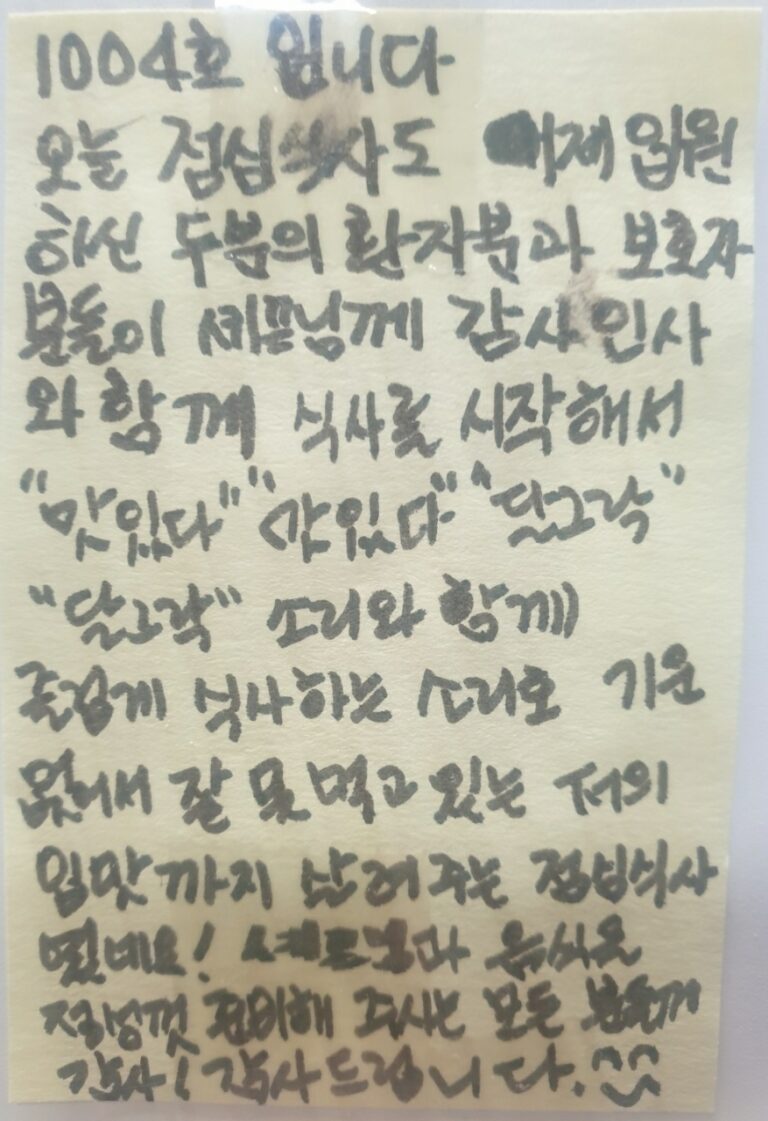 1004호 입니다
오늘 점심식사도 어제 입원
하신 두분의 환자분과 보호자
분들이 셰프님께 감사인사
와 함께 식사를 시작해서
"맛있다" "맛있다" "달그락"
"달그락" 소리와 함께
즐겁게 식사하는 소리로 기운
없어서 잘 못 먹고 있는 저의
입맛까지 살려주는 점심식사
였네요! 셰프님과 음식을
정성껏 준비해 주시는 모든 분들께
감사! 감사드립니다.^^